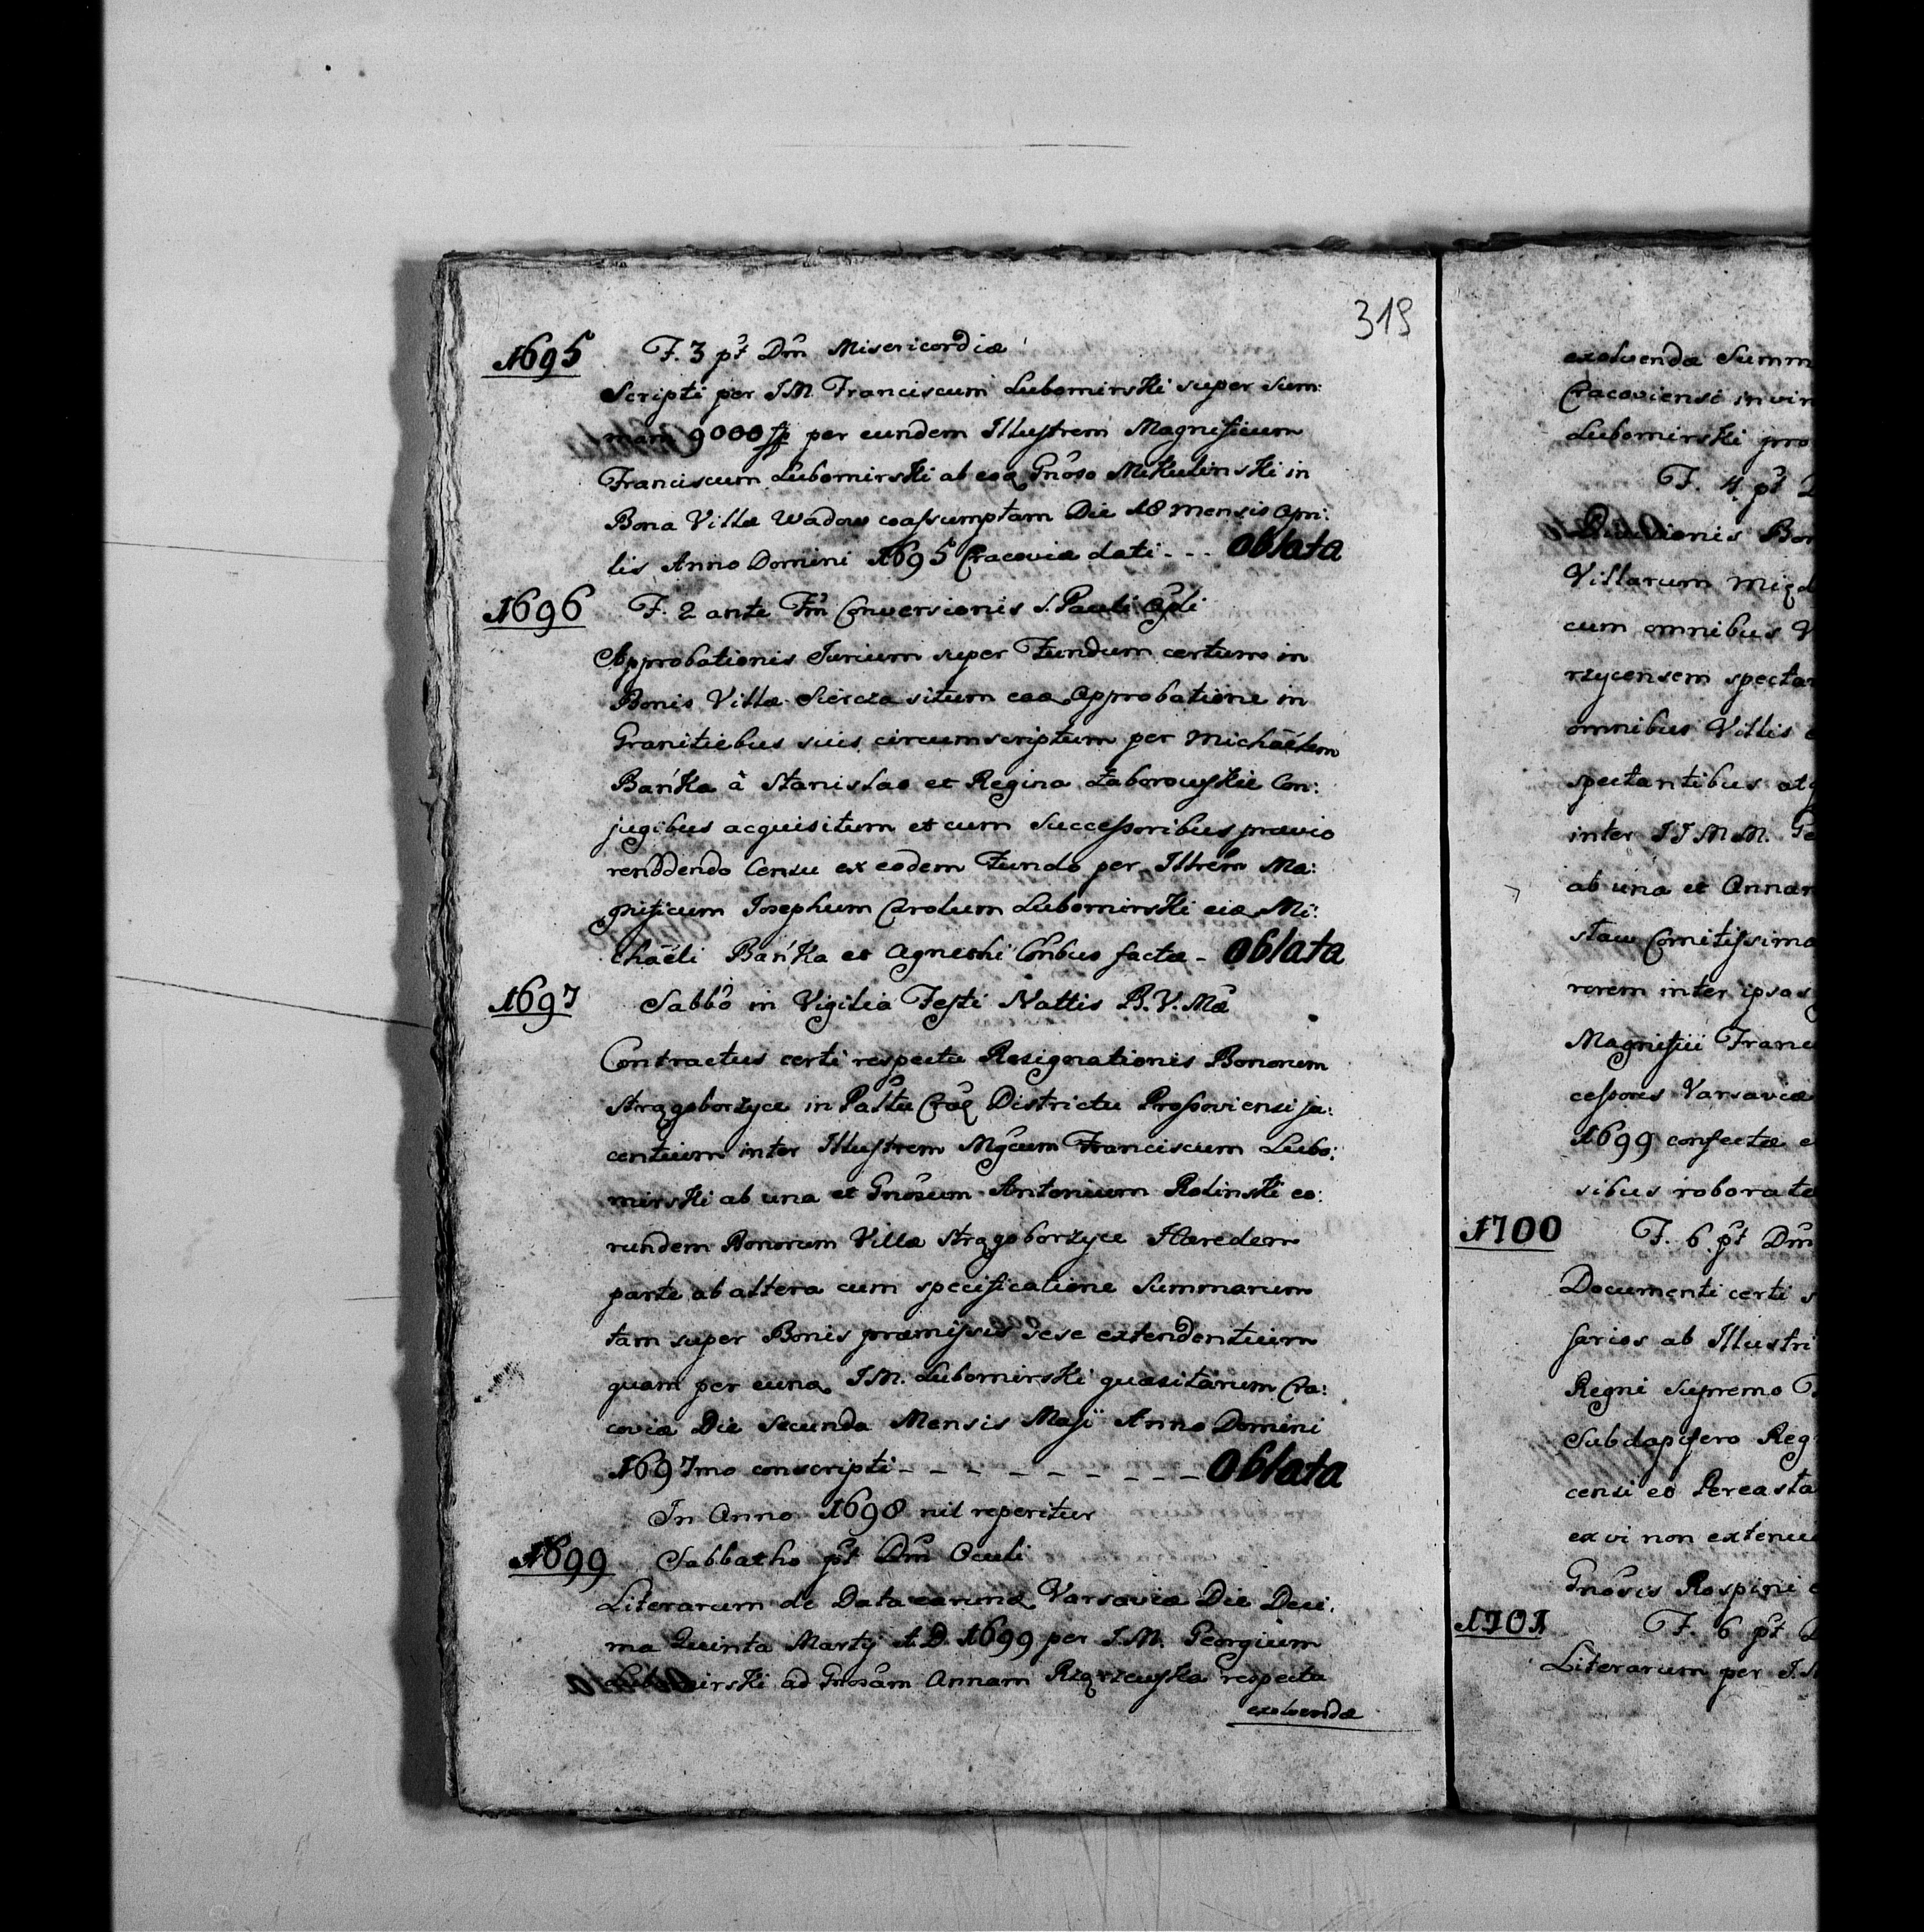 319
1695 F. 3 pt Dm Misericordiæ
Scripti per JM Franciscum Lubomirski super Sum:
mam 9000 fp per eundem Illustrem Magnificum
Franciscum Lubomirski ab eoq Gnoso Mikulinski in
Bona Villæ Wadow coassumptam Die 18 mensis Apri:
lis Anno Domini 1695 Cracoviæ dati - - - Oblata
1696 F. 2 ante Fm Conversionis S. Pauli Apli
Approbationis Jurium super Fundum certum in
Bonis Villæ Siercza situm eaq Approbatione in
Granitiebus suis circumscriptum per Michaëlem
Bańka à Stanislao et Regina Zaborowskie Con:
jugibus acquisitum et cum Successoribus prævio
renddendo Censu ex eodem Fundo per Illrem Ma:
gnificum Josephum Carolum Lubomirski eiq Mi:
chaëli Bańka et Agnethi Conbus factæ - Oblata
1697 Sabbo in Vigilia Festi Nattis B. V. Mæ
Contractus certi respectu Resignationis Bonorum
Strzgoborzyce in Pattu Crac Districtu Prossoviensi ja:
centium inter Illustrem Mgcum Franciscum Lubo:
mirski ab una et Gnosum Antonium Rolinski eo:
rundem Bonorum Villæ Strzgoborzyce Hæredem
parte ab altera cum specificatione Summarum
tam super Bonis præmissis sese extendentium
quam per eunq JM. Lubomirski quæsitarum Cra:
coviæ Die Secunda Mensis Maji Anno Domini
1697mo conscripti - - - - - - - - - Oblata
In Anno 1698 nil reperitur
1699 Sabbatho pt Dm Oculi
Literarum de Data earunq Varsaviæ Die Deci:
ma Quinta Martij A. D. 1699 per J.M. Georgium
Lubomirski ad Gnosam Annam respectu
exolvendæ
exolvendæ Summ
Cracoviensi in vim
Lubomirski pro
F. 4 pt D
Divisionis Bon
Villarum
cum omnibus V
rzycensem spectan
omnibus Villis
spectantibus atq
inter JJMM. Ge
ab una et Annam
staw Comitissima
rorem inter ipsas
Magnifici Franc
cessores Varsaviæ
1699 confectæ e
sibus roborate
1700 F. 6 pt Dm
Documenti certi s
sarios ab Illustri
Regni Supremo
Subdapifero Reg
censi eo
ex vi non extenu
Gnosis
1701 F. 6 pt D
Literarum per J.